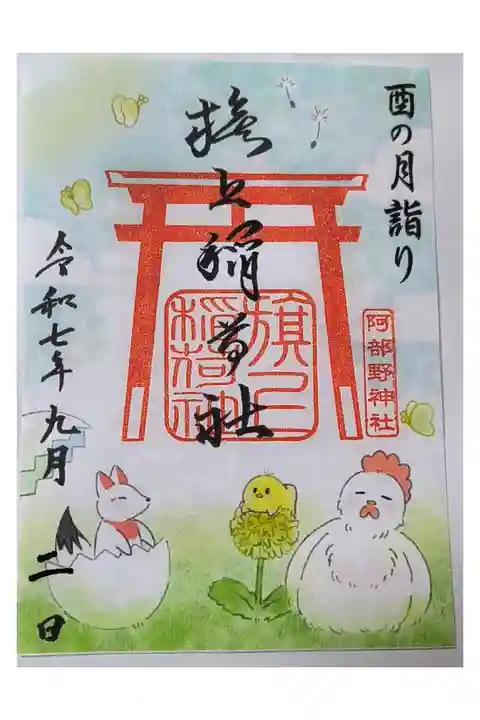 酉の月詣り
阿部野神社
旗上稲荷社
旗上
稲荷社
令和七年九月二日